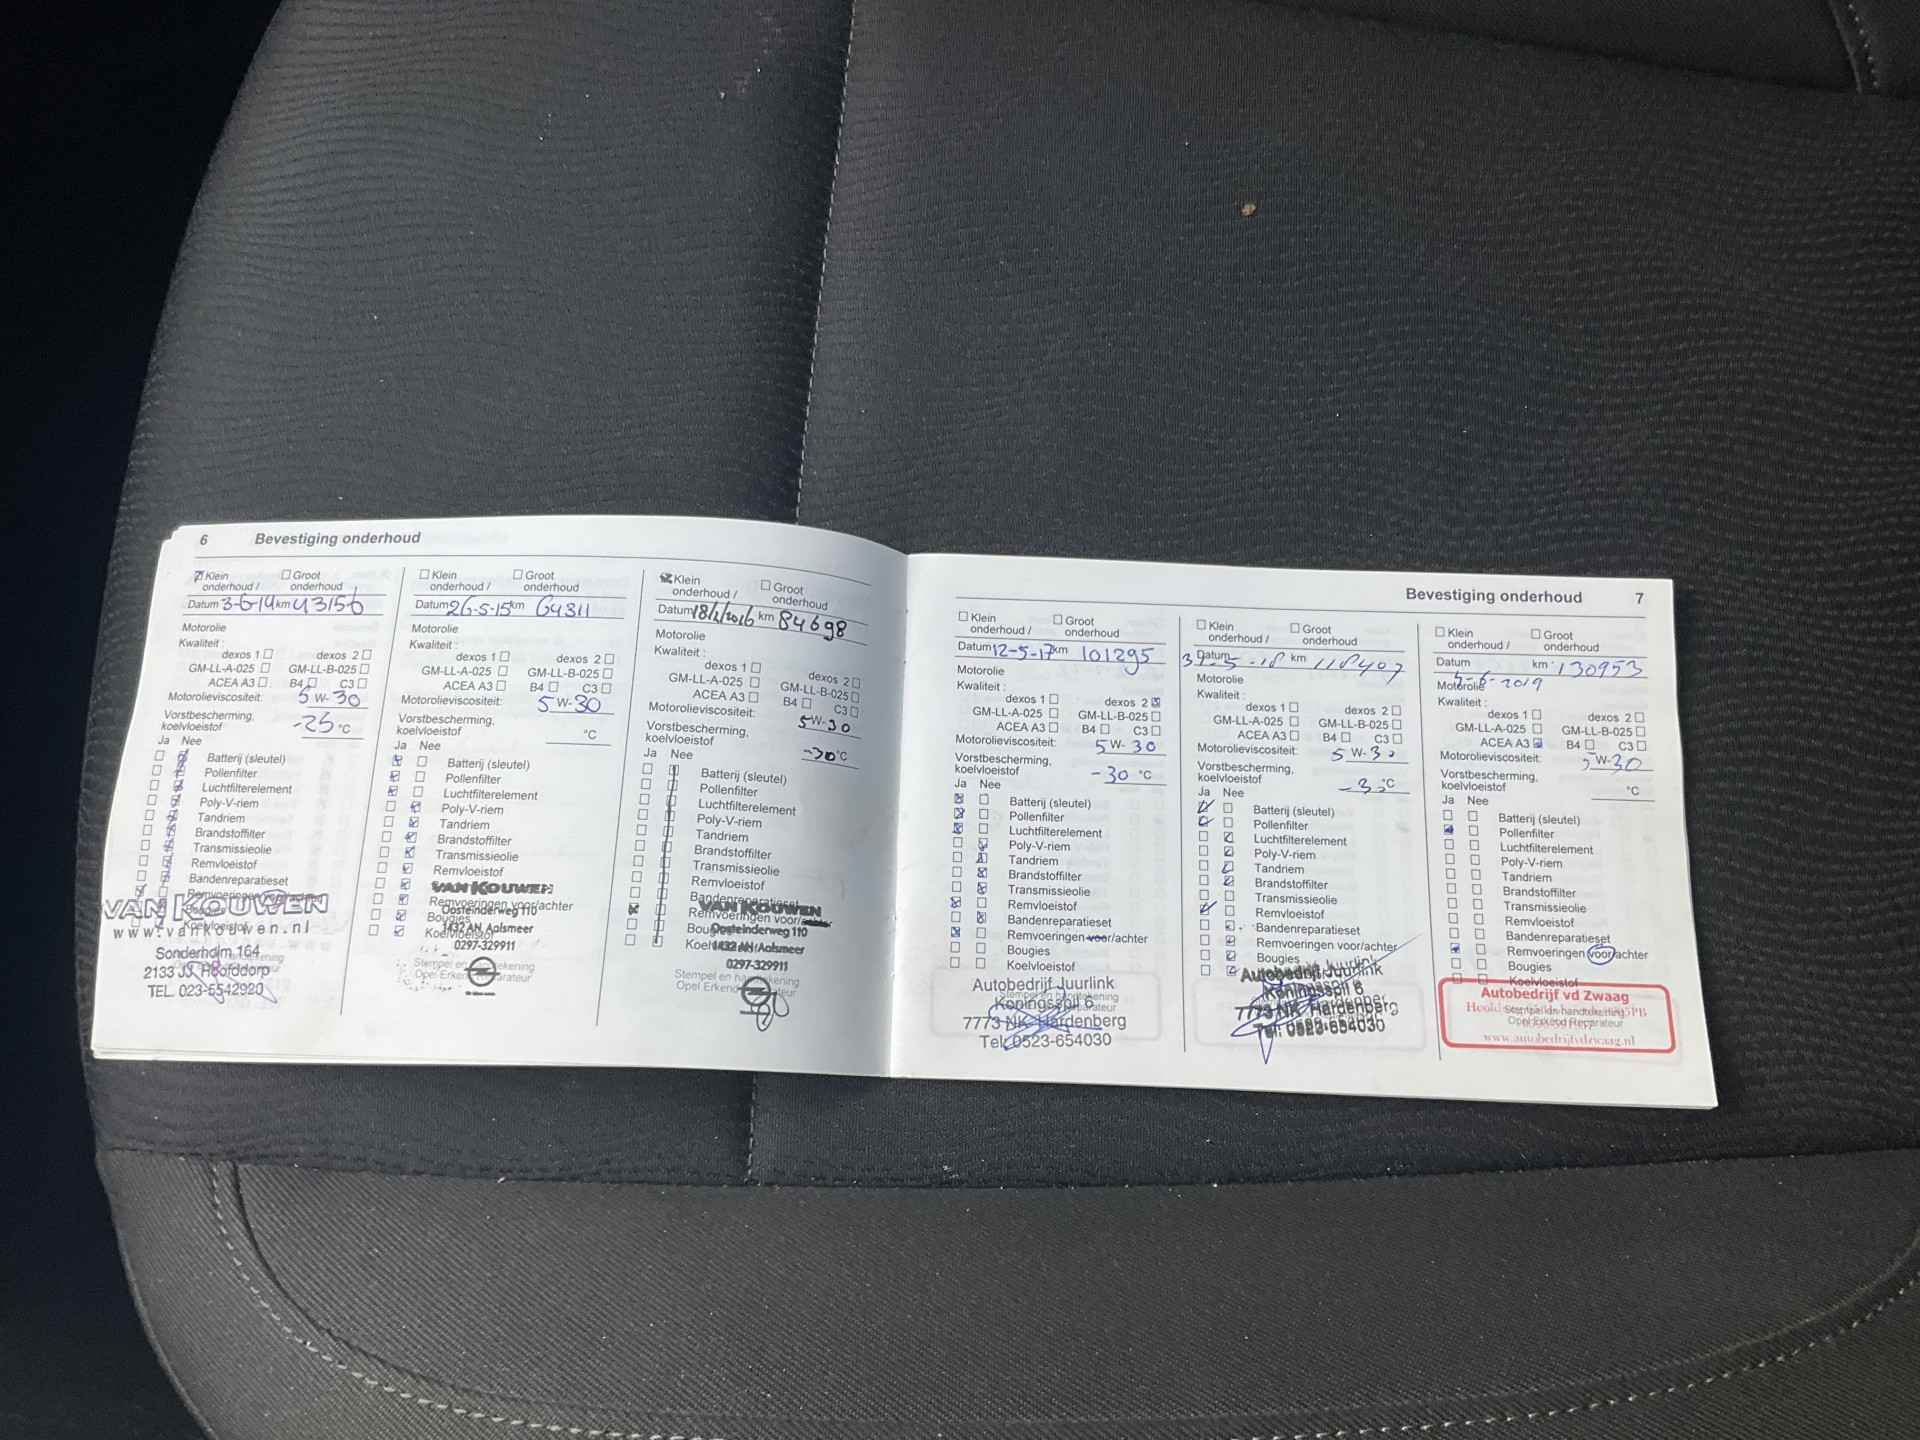 6 Bevestiging onderhoud
Klein onderhoud / Groot onderhoud
Datum 3-6-14 km 43156
Motorolie
Kwaliteit :
dexos 1 dexos 2
GM-LL-A-025 GM-LL-B-025
ACEA A3 B4 C3
Motorolieviscositeit: 5 W- 30
Vorstbescherming,
koelvloeistof -25 °C
Ja Nee
Batterij (sleutel)
Pollenfilter
Luchtfilterelement
Poly-V-riem
Tandriem
Brandstoffilter
Transmissieolie
Remvloeistof
Bandenreparatieset
VAN KOUWEN
www.vankouwen.nl
Koelvloeistof
Sonderholm 164
2133 JJ Hoofddorp
TEL. 023-5542920
Klein onderhoud / Groot onderhoud
Datum 26-5-15 km 64311
Motorolie
Kwaliteit :
dexos 1 dexos 2
GM-LL-A-025 GM-LL-B-025
ACEA A3 B4 C3
Motorolieviscositeit: 5 W- 30
Vorstbescherming,
koelvloeistof °C
Ja Nee
Batterij (sleutel)
Pollenfilter
Luchtfilterelement
Poly-V-riem
Tandriem
Brandstoffilter
Transmissieolie
Remvloeistof
VAN KOUWEN
Remvoeringen voor/achter
Oosteinderweg 110
Bougies
1432 AN Aalsmeer
Koelvloeistof
0297-329911
Stempel en handtekening
Opel Erkend Reparateur
Klein onderhoud / Groot onderhoud
Datum 18/2/2016 km 84698
Motorolie
Kwaliteit :
dexos 1 dexos 2
GM-LL-A-025 GM-LL-B-025
ACEA A3 B4 C3
Motorolieviscositeit: 5 W- 30
Vorstbescherming,
koelvloeistof -30 °C
Ja Nee
Batterij (sleutel)
Pollenfilter
Luchtfilterelement
Poly-V-riem
Tandriem
Brandstoffilter
Transmissieolie
Remvloeistof
Bandenreparatieset
VAN KOUWEN
Remvoeringen voor/achter
Oosteinderweg 110
Bougies
1432 AN Aalsmeer
Koelvloeistof
0297-329911
Stempel en handtekening
Opel Erkend Reparateur
Bevestiging onderhoud 7
Klein onderhoud / Groot onderhoud
Datum 12-5-17 km 101295
Motorolie
Kwaliteit :
dexos 1 dexos 2
GM-LL-A-025 GM-LL-B-025
ACEA A3 B4 C3
Motorolieviscositeit: 5 W- 30
Vorstbescherming,
koelvloeistof -30 °C
Ja Nee
Batterij (sleutel)
Pollenfilter
Luchtfilterelement
Poly-V-riem
Tandriem
Brandstoffilter
Transmissieolie
Remvloeistof
Bandenreparatieset
Remvoeringen voor/achter
Bougies
Koelvloeistof
Autobedrijf Juurlink
Stempel en handtekening
Koningsspil 6
7773 NK Hardenberg
Tel: 0523-654030
Klein onderhoud / Groot onderhoud
Datum km
Motorolie
Kwaliteit :
dexos 1 dexos 2
GM-LL-A-025 GM-LL-B-025
ACEA A3 B4 C3
Motorolieviscositeit: 5 W- 30
Vorstbescherming,
koelvloeistof -30 °C
Ja Nee
Batterij (sleutel)
Pollenfilter
Luchtfilterelement
Poly-V-riem
Tandriem
Brandstoffilter
Transmissieolie
Remvloeistof
Bandenreparatieset
Remvoeringen voor/achter
Bougies
Autobedrijf Juurlink
Koningsspil 6
7773 NK Hardenberg
Tel: 0523-654030
Klein onderhoud / Groot onderhoud
Datum km 130953
Motorolie 5-6-2019
Kwaliteit :
dexos 1 dexos 2
GM-LL-A-025 GM-LL-B-025
ACEA A3 B4 C3
Motorolieviscositeit: 5 W- 30
Vorstbescherming,
koelvloeistof °C
Ja Nee
Batterij (sleutel)
Pollenfilter
Luchtfilterelement
Poly-V-riem
Tandriem
Brandstoffilter
Transmissieolie
Remvloeistof
Bandenreparatieset
Remvoeringen voor/achter
Bougies
Koelvloeistof
Autobedrijf vd Zwaag
Stempel en handtekening
Opel Erkend Reparateur
www.autobedrijfvdzwaag.nl